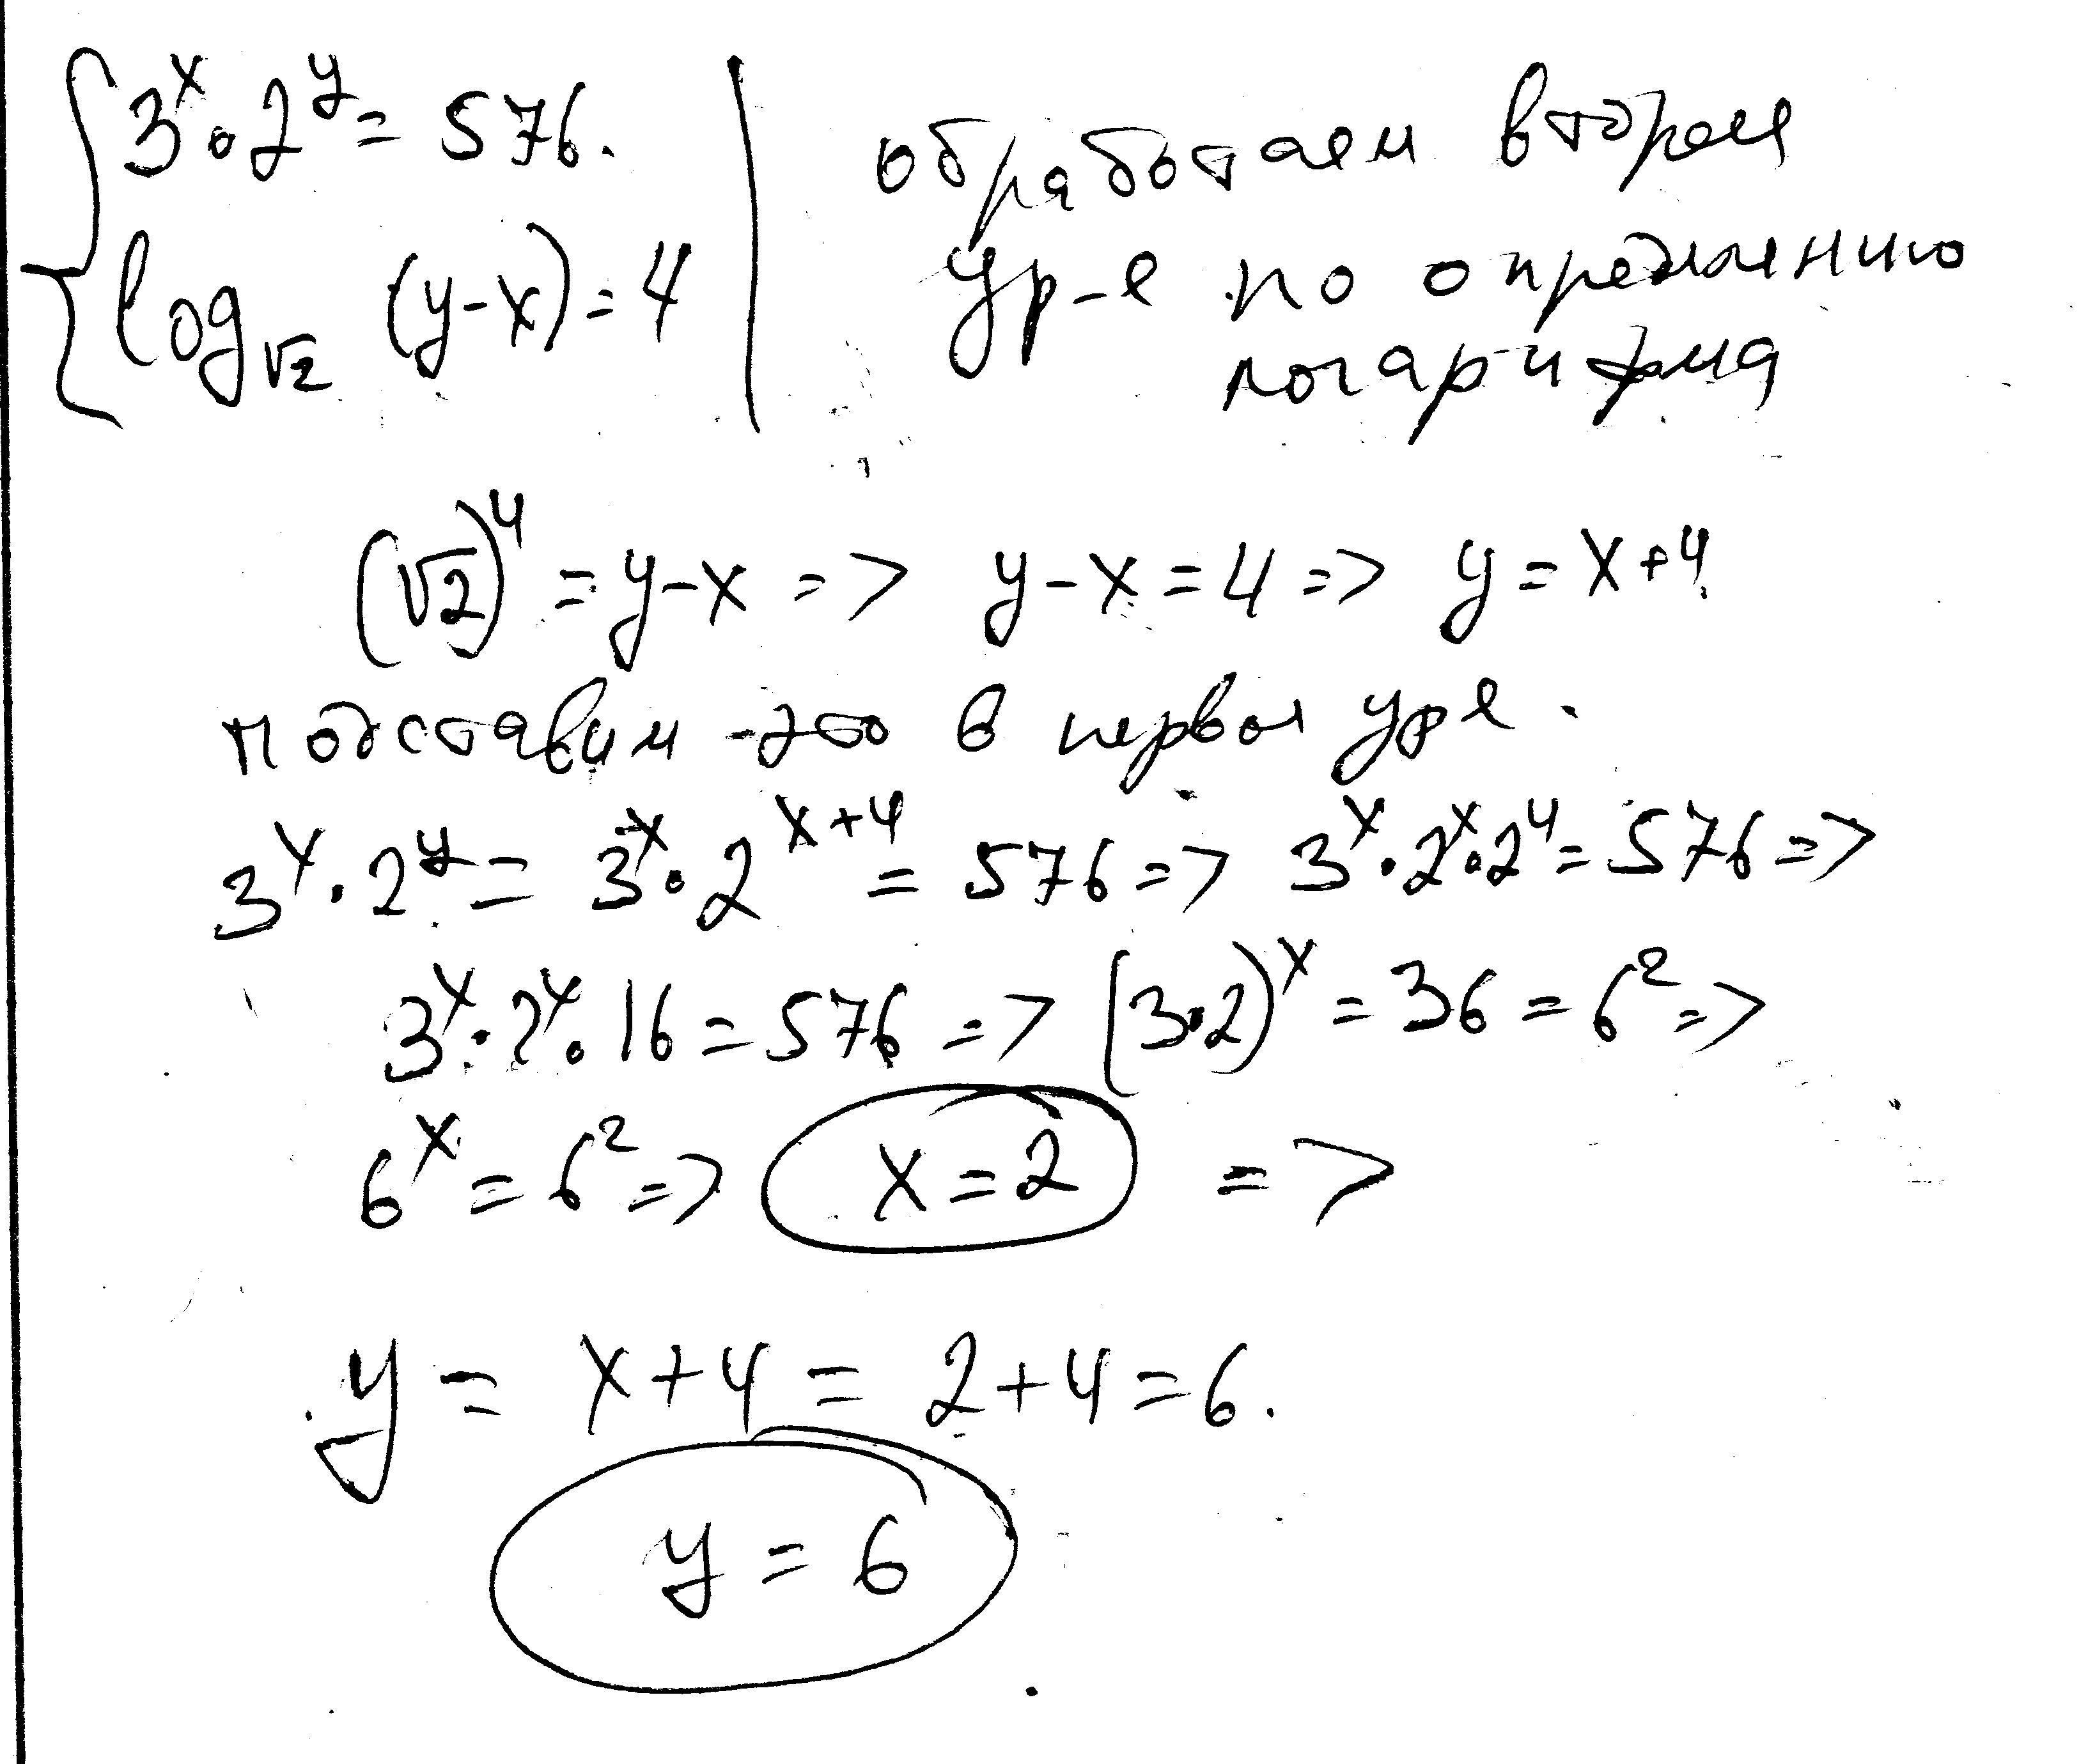 3^x · 2^y = 576.
обработаем второе
log_√2 (y-x) = 4
ур-е по определению
логарифма
(√2)^4 = y-x => y-x = 4 => y = x+4
подставим это в первое ур е.
3^x · 2^y = 3^x · 2^(x+4) = 576 => 3^x · 2^x · 2^4 = 576 =>
3^x · 2^x · 16 = 576 => (3·2)^x = 36 = 6^2 =>
6^x = 6^2 => x = 2 =>
y = x+4 = 2+4 = 6.
y = 6